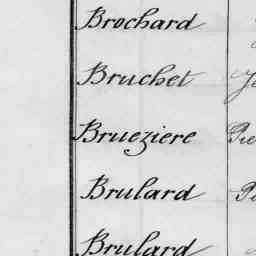 Brochard
Bruchet
Brueziere
Brulard
Brulard